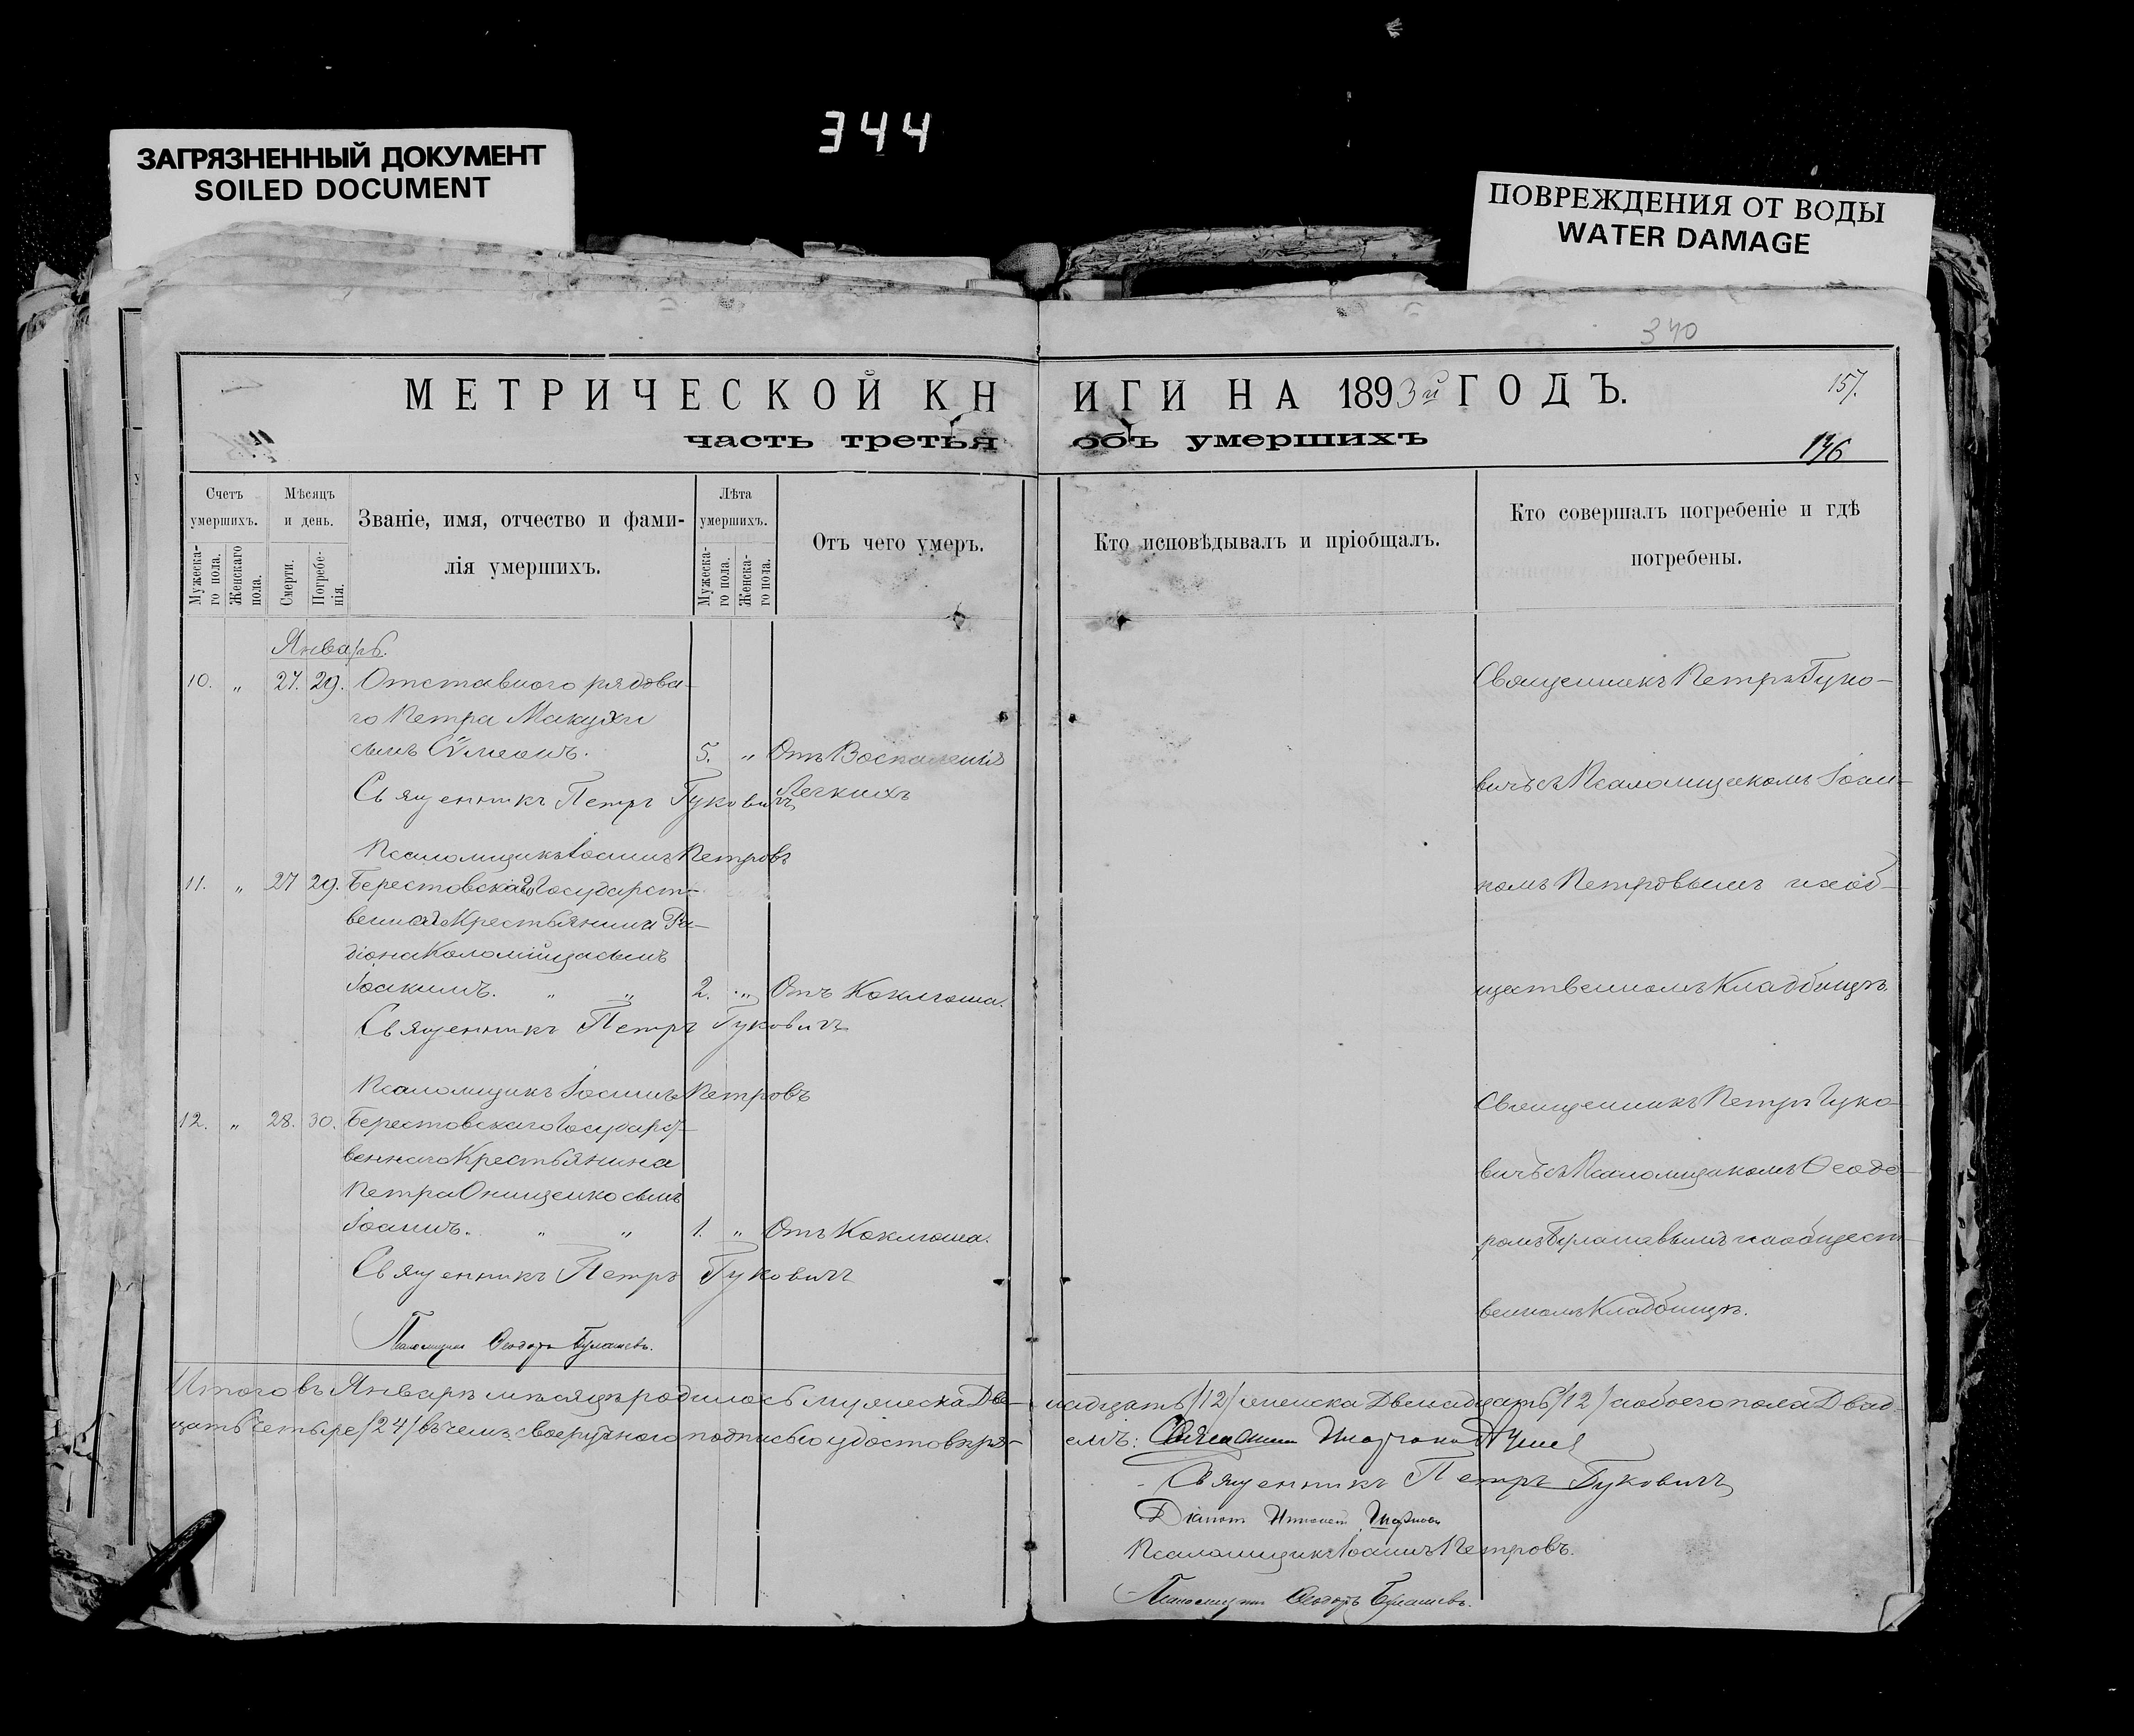 344
ЗАГРЯЗНЕННЫЙ ДОКУМЕНТ
SOILED DOCUMENT
ПОВРЕЖДЕНИЯ ОТ ВОДЫ
WATER DAMAGE
340
МЕТРИЧЕСКОЙ КНИГИ НА 1893й ГОДЪ.
157.
часть третья объ умершихъ
146
Счетъ умершихъ.
Мужеска-го пола.
Женскаго пола.
Мѣсяцъ и день.
Смерти.
Погребе-нія.
Званіе, имя, отчество и фами-
лія умершихъ.
Лѣта умершихъ.
Мужеска-го пола.
Женска-го пола.
Отъ чего умеръ.
Кто исповѣдывалъ и пріобщалъ.
Кто совершалъ погребеніе и гдѣ
погребены.
Январь.
10. „ 27. 29. Отставного рядова-
го Петра Макухи
сынъ Сѵмеонъ. 5. „ Отъ Воспаленія
Легкихъ
Священникъ Петръ Гуковичъ
Псаломщикъ Іоаннъ Петровъ
Священникъ Петръ Гуко-
вичъ съ Псаломщикомъ Іоан-
номъ Петровымъ на об-
щественномъ Кладбищѣ.
11. „ 27 29. Берестовскаго Государст-
веннаго Крестьянина Ра-
діона Коломійца сынъ
Іоакимъ. „ „ 2. „ Отъ Коклюша.
Священникъ Петръ Гуковичъ
Псаломщикъ Іоаннъ Петровъ
12. „ 28. 30. Берестовскаго Государст-
веннаго Крестьянина
Петра Онищенко сынъ
Іоаннъ. „ „ 1. „ Отъ Коклюша.
Священникъ Петръ Гуковичъ
Псаломщикъ Ѳеодоръ Булашевъ.
Священникъ Петръ Гуко-
вичъ съ Псаломщикомъ Ѳеодо-
ромъ Булашевымъ на общест-
венномъ Кладбищѣ.
Итого въ Январѣ мѣсяцѣ родилось мужеска Две-надцать /12/ женска Двенадцать /12/ а обоего пола Двад-
цать четыре /24/ въ чемъ своеручною подписью удостовѣря-емъ: Священникъ
Священникъ Петръ Гуковичъ
Діаконъ
Псаломщикъ Іоаннъ Петровъ.
Псаломщикъ Ѳеодоръ Булашевъ.